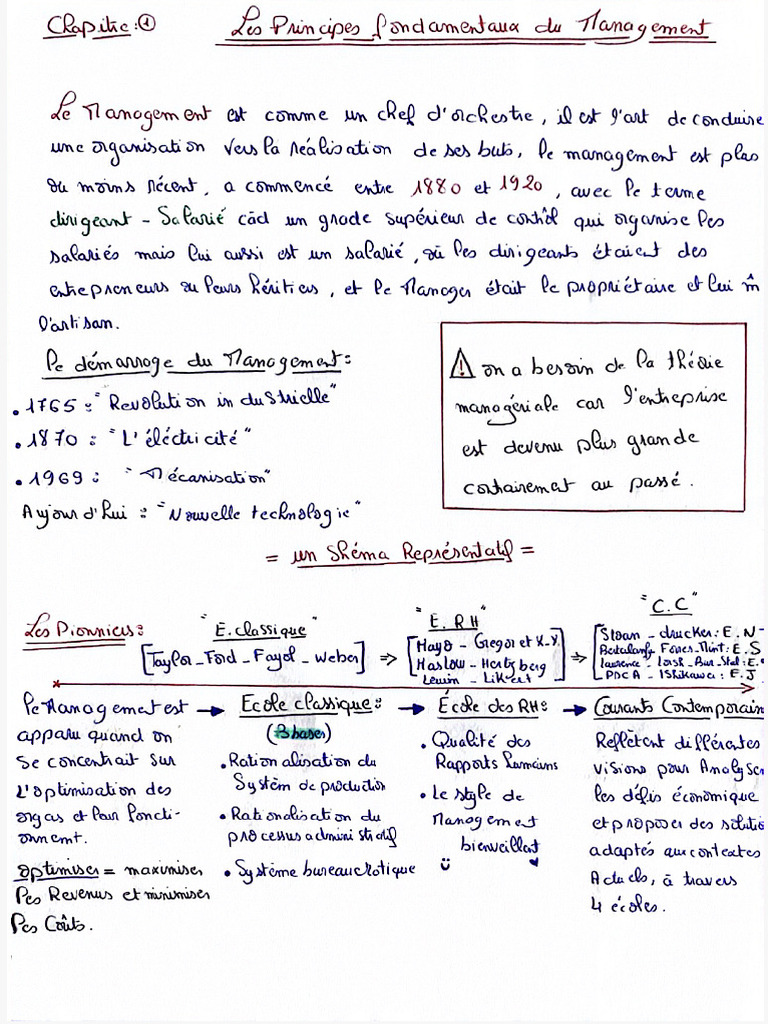 Chapitre : ①
Les Principes fondamentaux du Management
Le Management est comme un chef d'orchestre, il est l'art de conduire
une organisation vers la réalisation de ses buts, le management est plus
ou moins récent, a commencé entre 1880 et 1920, avec le terme
dirigeant - Salarié càd un grade supérieur de contrôl qui organise les
salariés mais lui aussi est un salarié, où les dirigeants étaient des
entrepreneurs ou leurs héritiers, et le Manager était le propriétaire et lui m̂
l'artisan.
le démarrage du Management :
• 1765 : "Revolution industrielle"
• 1870 : "L'éléctricité"
• 1969 : "Mécanisation"
Aujour d'hui : "Nouvelle technologie"
⚠ on a besoin de la théorie
managériale car l'entreprise
est devenu plus grande
contrairement au passé.
= un Shéma Représentatif =
Les Pionniers :
"E. classique"
[Taylor - Ford - Fayol - Weber] =>
"E. RH"
[Mayo - Gregor et X-Y.
Maslow - Hertzberg
Lewin - Likert] =>
"C.C"
[Sloan - drucker : E. N-
Bertalanfy Forres - Mint : E. S
Laurence - Lorsh - Bur - Stal : E.
PDCA - Ishikawa : E. J
le Management est
apparu quand on
se concentrait sur
L'optimisation des
orgas et leur foncti-
onnemt.
optimiser = maximiser
les Revenus et minimiser
les Coûts.
→ Ecole classique :
(3 bases)
• Rationalisation du
Systèm de production
• Rationalisation du
processus administratif
• Système bureaucratique
→ École des RH :
• Qualité des
Rapports humains
• Le style de
Management
bienveillant
→ Courants Contemporain
Reflètent différentes
visions pour Analyser
les défis économique
et proposer des solutio
adaptés aux contextes
Actuels, à travers
4 écoles.